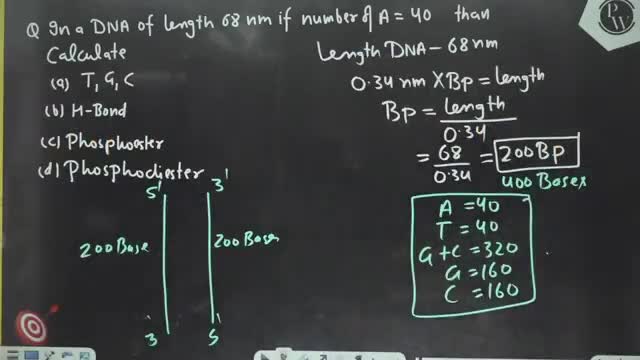 Q In a DNA of length 68 nm if number of A = 40 than
Calculate
(a) T, G, C
(b) H-Bond
(c) Phosphoester
(d) Phosphodiester
Length DNA - 68nm
0.34 nm X Bp = length
Bp = length
0.34
= 68 = 200 BP
0.34
400 Bases
5' 3'
200 Base 200 Bases
3 5
A = 40
T = 40
G + C = 320
G = 160
C = 160
PW